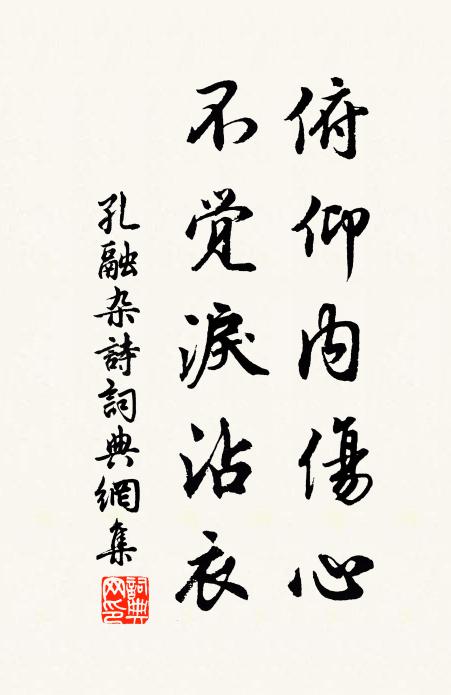 俯仰内傷心
不覚淚沾衣
孔融杂詩詞典網集
詞典网印